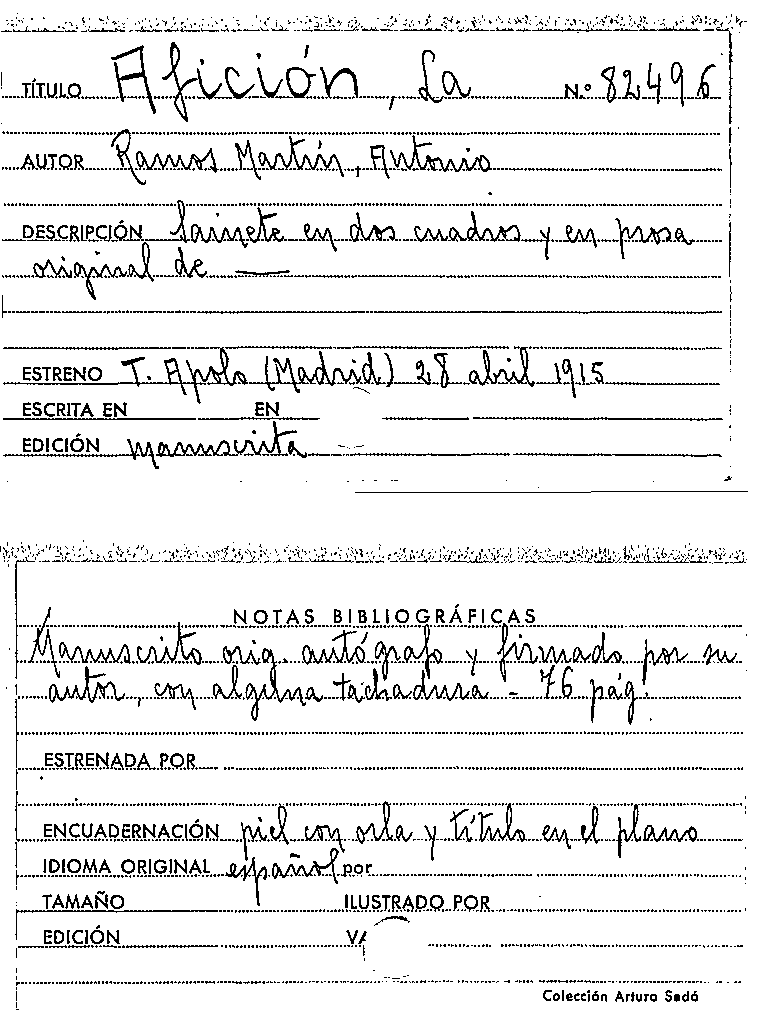 TÍTULO Afición, La N.º 82496
AUTOR Ramos Martín, Antonio
DESCRIPCIÓN Sainete en dos cuadros y en prosa
original de —
ESTRENO T. Apolo (Madrid) 28 abril 1915
ESCRITA EN EN
EDICIÓN manuscrita
NOTAS BIBLIOGRÁFICAS
Manuscrito orig. autógrafo y firmado por su
autor, con alguna tachadura - 76 pág.
ESTRENADA POR
ENCUADERNACIÓN piel con orla y título en el plano
IDIOMA ORIGINAL español por
TAMAÑO ILUSTRADO POR
EDICIÓN
Colección Arturo Sedó